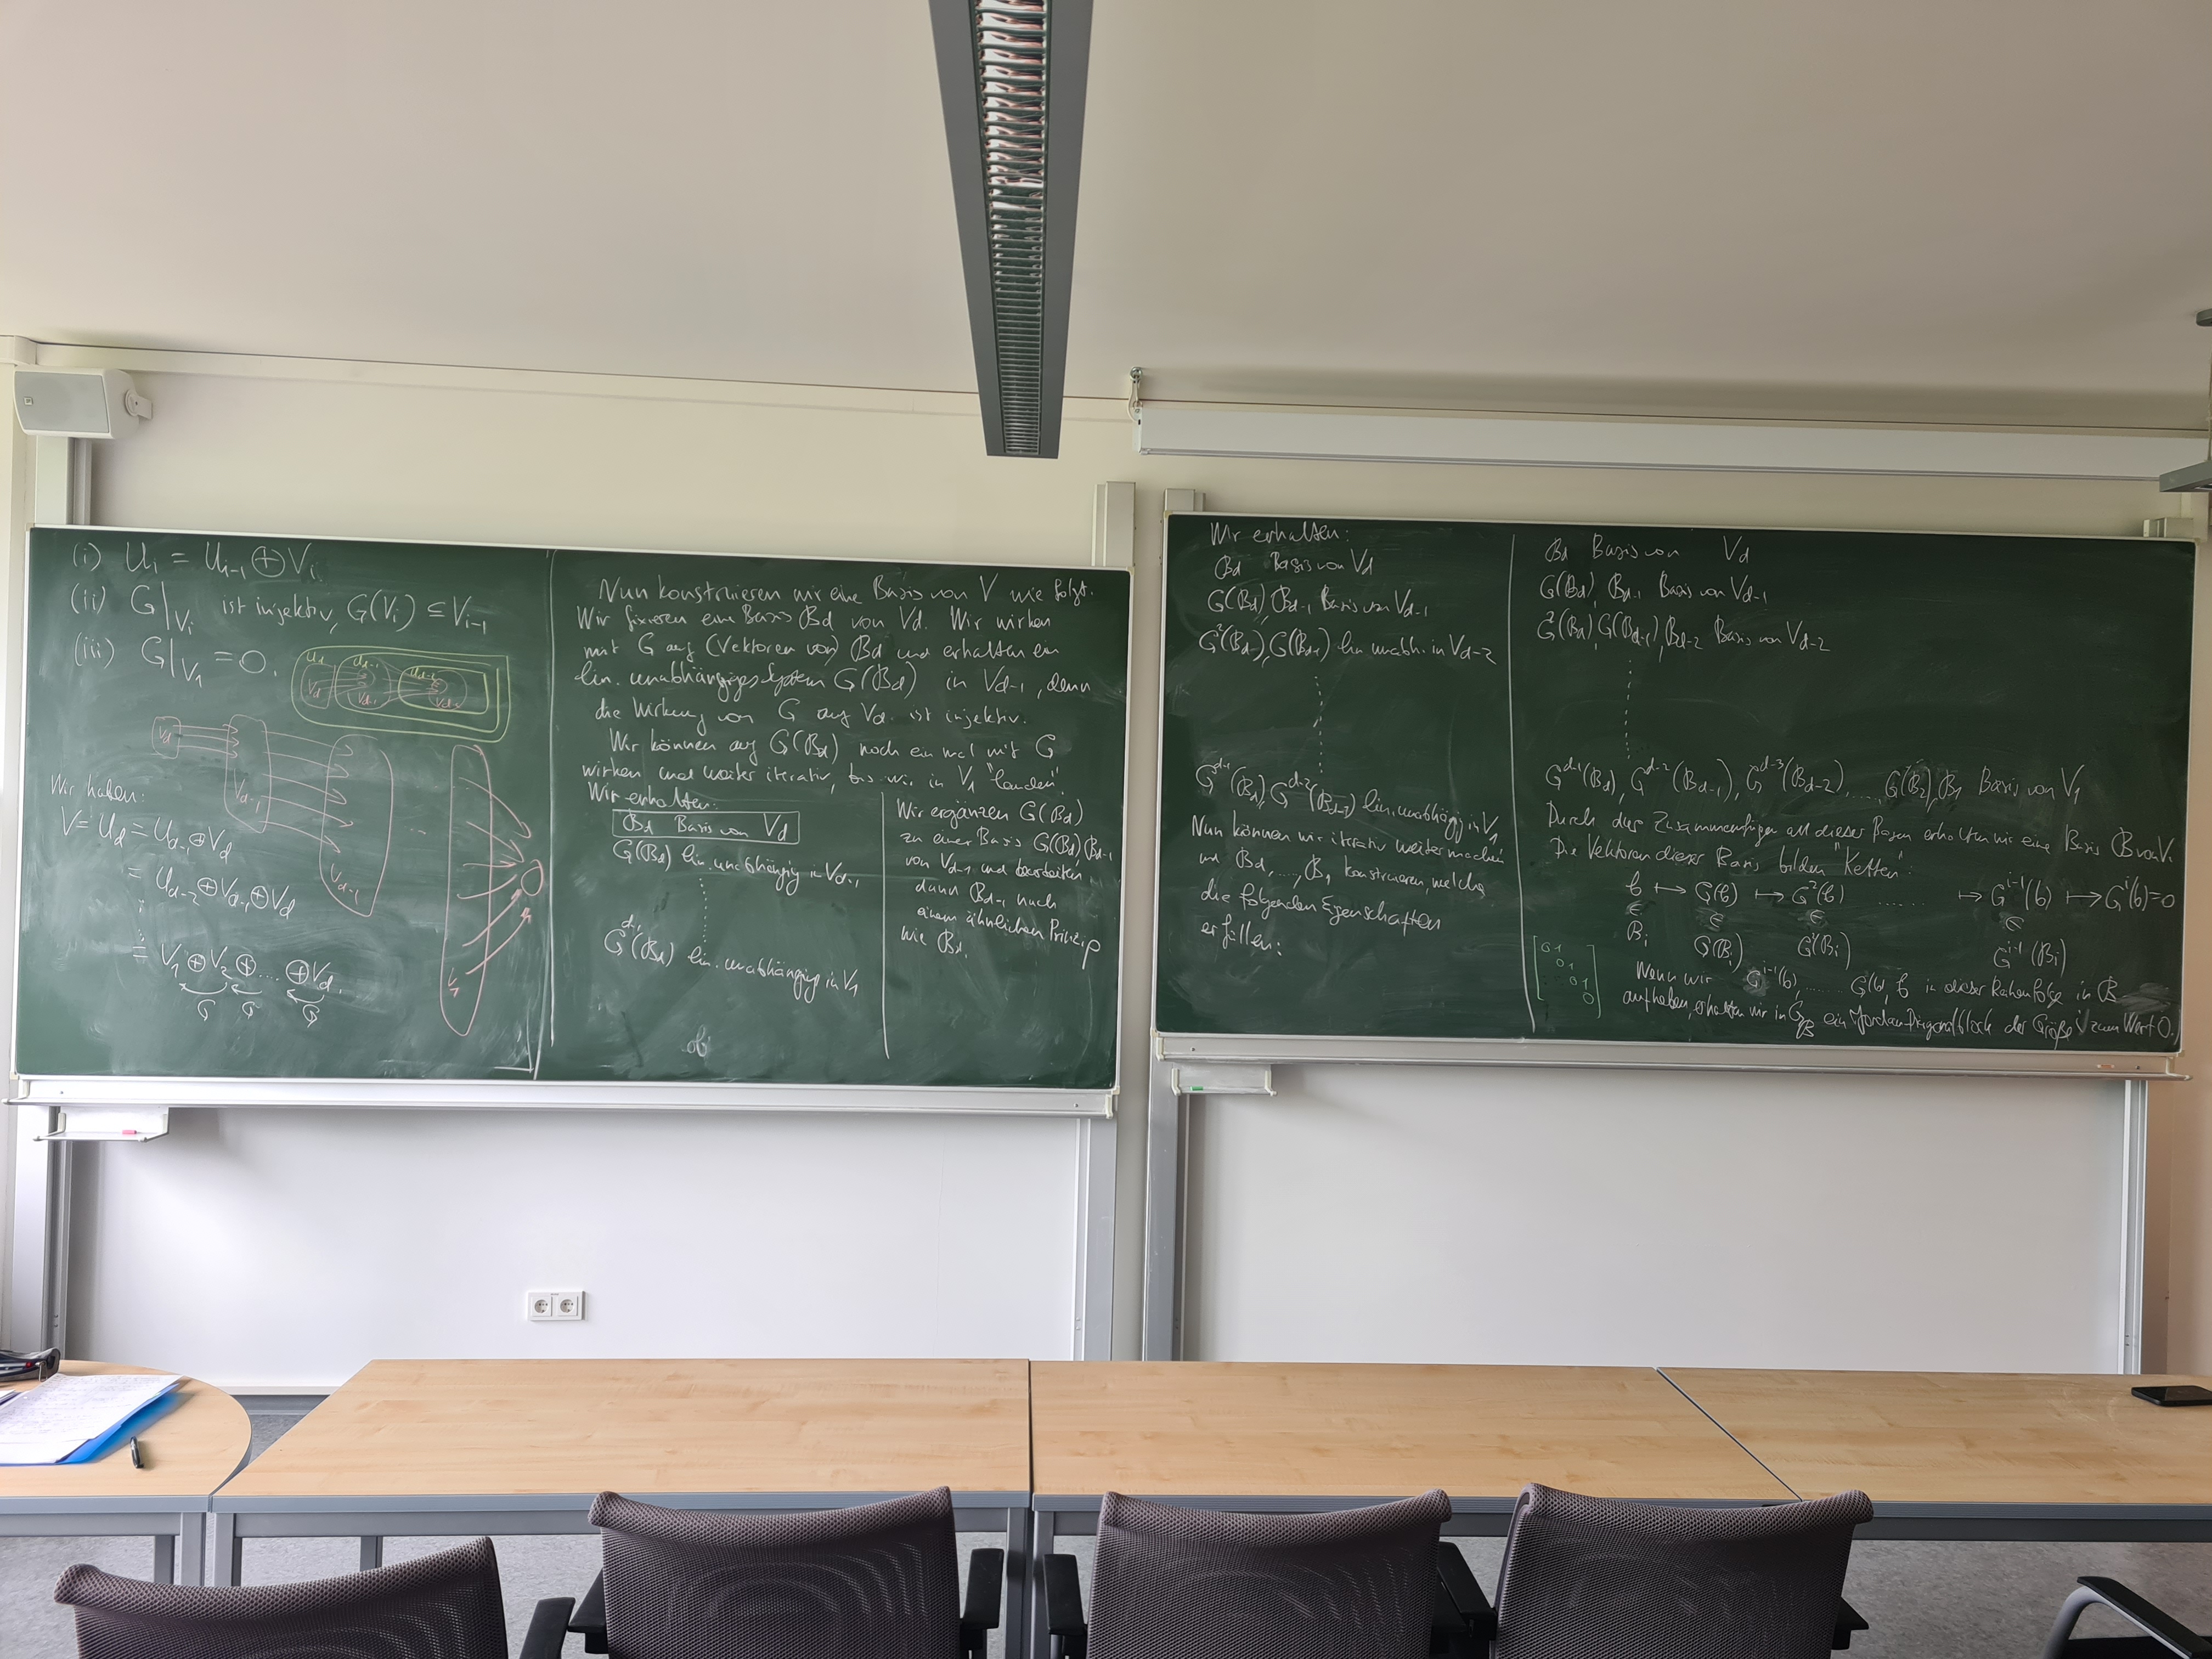 (i) U_i = U_{i-1} ⊕ V_i
(ii) G|_{V_i} ist injektiv, G(V_i) ⊆ V_{i-1}
(iii) G|_{V_1} = 0.
U_d U_{d-1} U_{d-2}
V_d V_{d-1}
V_d
V_{d-1}
V_{d-1}
V_1
Wir haben:
V = U_d = U_{d-1} ⊕ V_d
= U_{d-2} ⊕ V_{d-1} ⊕ V_d
⋮
= V_1 ⊕ V_2 ⊕ .... ⊕ V_d.
G G G
Nun konstruieren wir eine Basis von V wie folgt.
Wir fixieren eine Basis B_d von V_d. Wir wirken
mit G auf (Vektoren von) B_d und erhalten ein
lin. unabhängiges System G(B_d) in V_{d-1}, denn
die Wirkung von G auf V_d ist injektiv.
Wir können auf G(B_d) noch ein mal mit G
wirken und weiter iterativ, bis wir in V_1 "landen".
Wir erhalten:
B_d Basis von V_d
G(B_d) lin. unabhängig in V_{d-1}
⋮
G^{d-1}(B_d) lin. unabhängig in V_1
Wir ergänzen G(B_d)
zu einer Basis G(B_d) B_{d-1}
von V_{d-1} und bearbeiten
dann B_{d-1} nach
einem ähnlichen Prinzip
wie B_d.
Wir erhalten:
B_d Basis von V_d
G(B_d) B_{d-1} Basis von V_{d-1}
G^2(B_d), G(B_{d-1}) lin unabh. in V_{d-2}
⋮
G^{d-1}(B_d), G^{d-2}(B_{d-1}) lin. unabhängig in V_1
Nun können wir iterativ weitermachen
und B_d, ..., B_1 konstruieren, welche
die folgenden Eigenschaften
erfüllen:
B_d Basis von V_d
G(B_d), B_{d-1} Basis von V_{d-1}
G^2(B_d) G(B_{d-1}), B_{d-2} Basis von V_{d-2}
⋮
G^{d-1}(B_d), G^{d-2}(B_{d-1}), G^{d-3}(B_{d-2}), ...., G(B_2), B_1 Basis von V_1
Durch das Zusammenfügen all dieser Basen erhalten wir eine Basis B von V.
Die Vektoren dieser Basis bilden "Ketten":
b ↦ G(b) ↦ G^2(b) ...... ↦ G^{i-1}(b) ↦ G^i(b) = 0
∈ ∈ ∈ ∈
B_i G(B_i) G^2(B_i) G^{i-1}(B_i)
0 1
0 1
0 1
0
Wenn wir G^{i-1}(b), ...... G(b), b in dieser Reihenfolge in B
aufheben, erhalten wir in G_B ein Jordan-Diagonalblock der Größe i zum Wert 0.